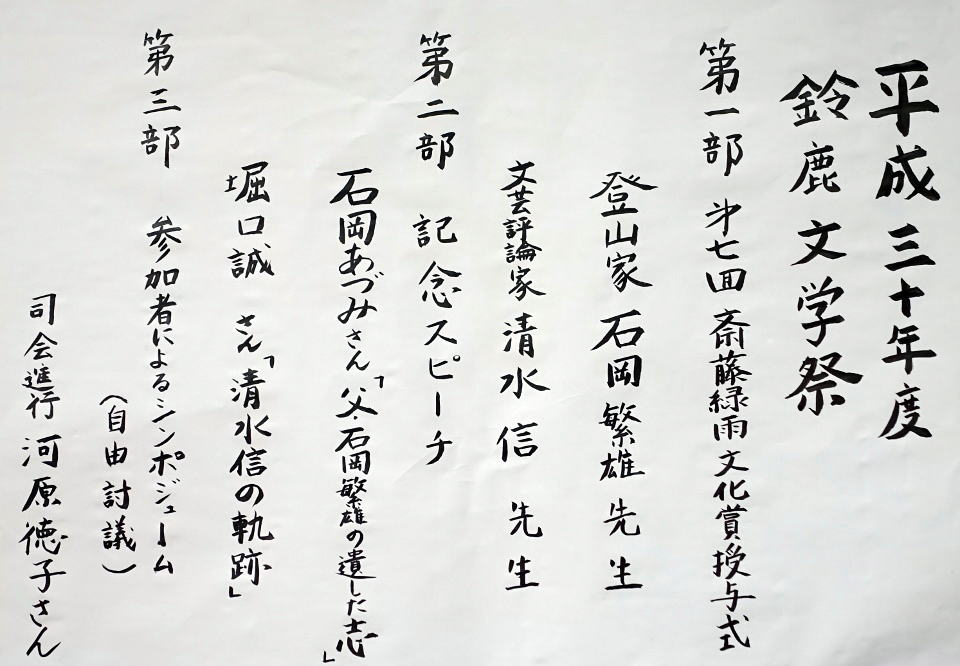 平成三十年度
鈴鹿文学祭
第一部 第七回 斎藤緑雨文化賞授与式
登山家 石岡繁雄先生
文芸評論家 清水信 先生
第二部 記念スピーチ
石岡あづみさん「父・石岡繁雄の遺した志」
堀口誠 さん「清水信の軌跡」
第三部 参加者によるシンポジューム
(自由討議)
司会進行 河原徳子さん